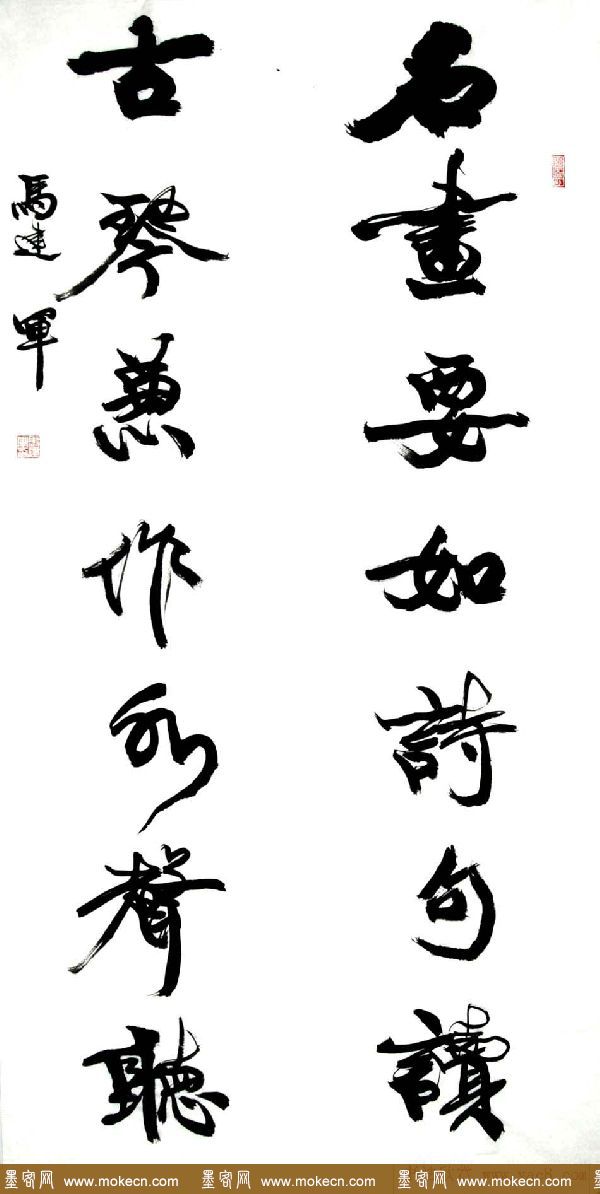 名畫要如詩句讀
古琴兼作水聲聽
馬建軍
墨客网 www.mokecn.com 墨客网 www.mokecn.com 墨客网 www.mokecn.com